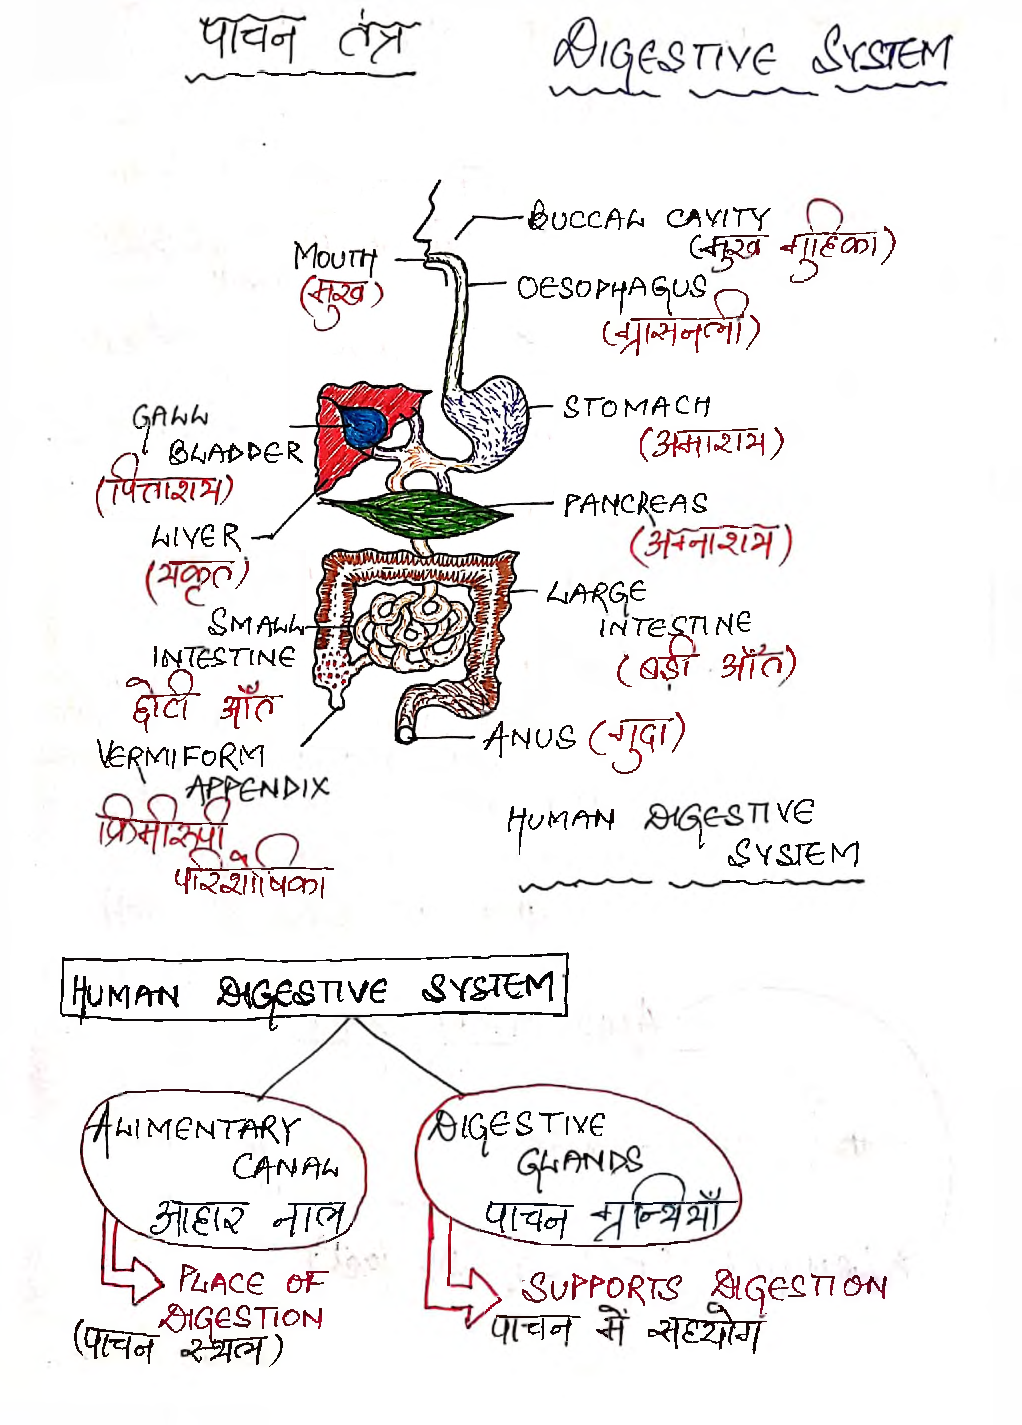 पाचन तंत्र
DIGESTIVE SYSTEM
BUCCAL CAVITY
(मुख गुहिका)
MOUTH
(मुख)
OESOPHAGUS
(ग्रासनली)
GALL
BLADDER
(पित्ताशय)
STOMACH
(अमाशय)
LIVER
(यकृत)
PANCREAS
(अग्नाशय)
SMALL
INTESTINE
छोटी आँत
LARGE
INTESTINE
(बड़ी आँत)
VERMIFORM
APPENDIX
क्रिमीरूपी
परिशोषिका
ANUS (गुदा)
HUMAN DIGESTIVE
SYSTEM
HUMAN DIGESTIVE SYSTEM
ALIMENTARY
CANAL
आहार नाल
PLACE OF
DIGESTION
(पाचन स्थल)
DIGESTIVE
GLANDS
पाचन ग्रन्थियाँ
SUPPORTS DIGESTION
पाचन में सहयोग